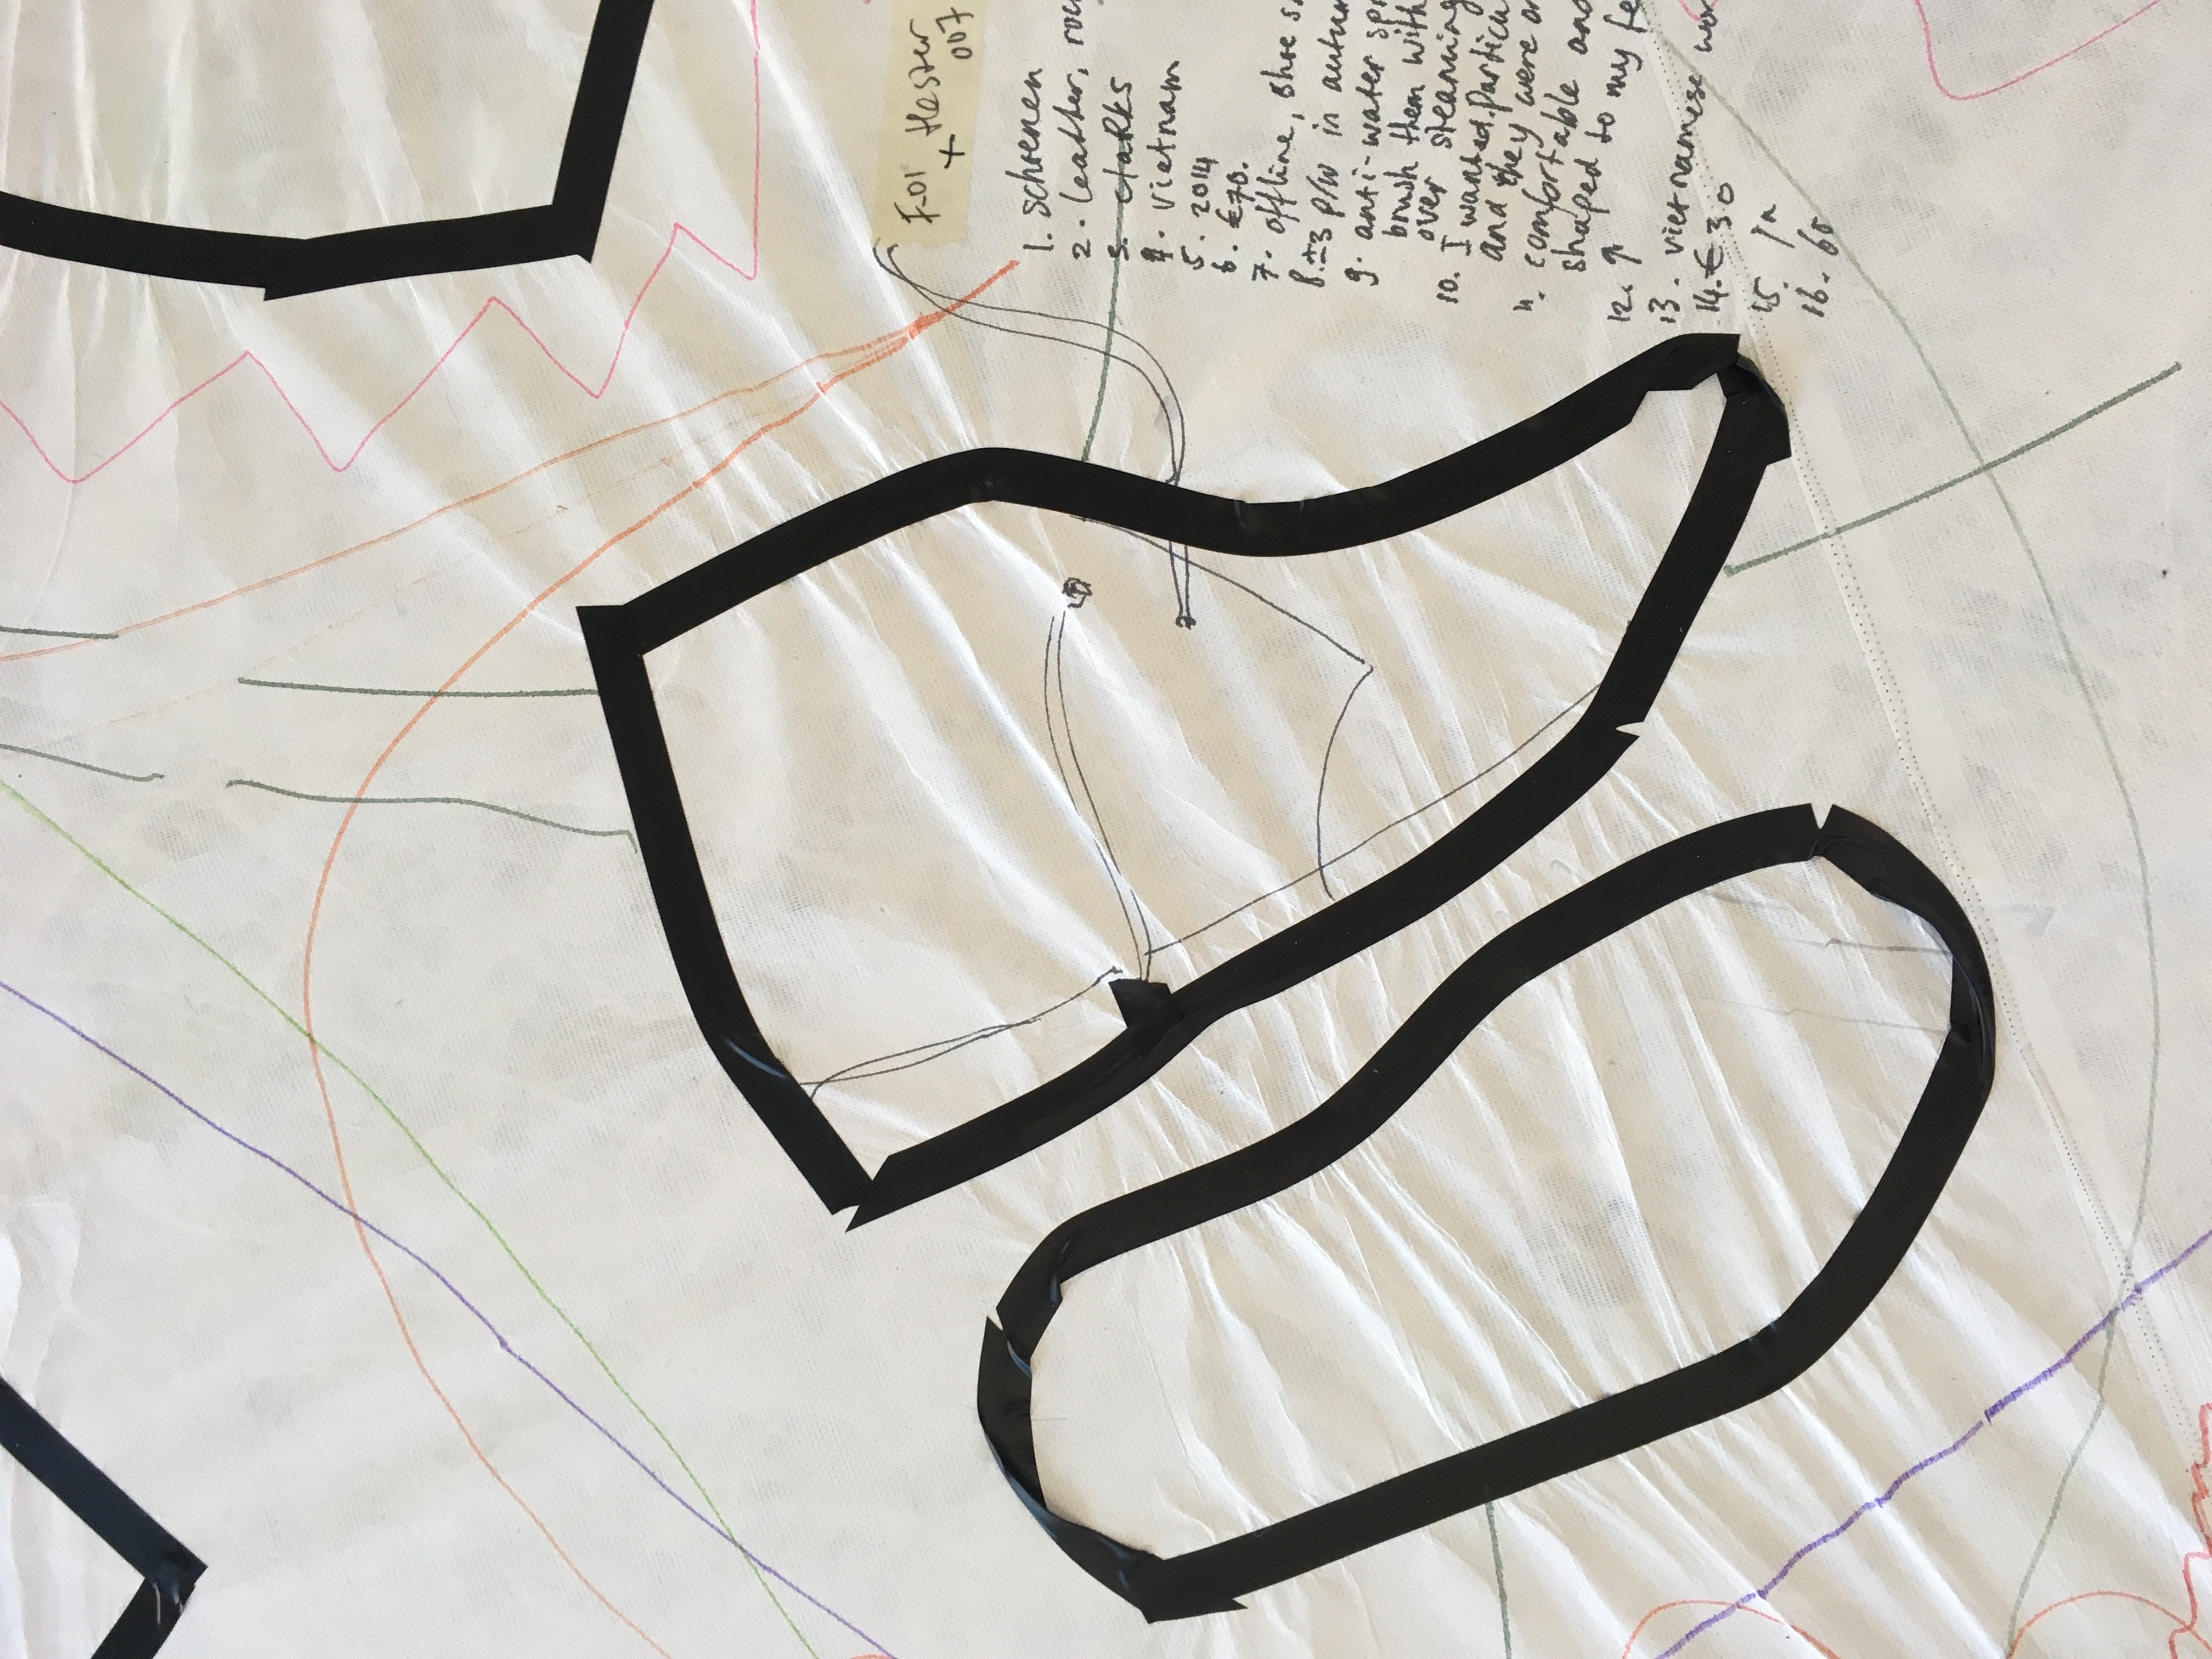 F-01 Hester
+ 007
1. schoenen
2. leather,
3. clarks
4. vietnam
5. 2014
6. €70.
7. offline, shoe
8. ±3 p/w in
9. anti-water
brush them with
over steaming
10. I wanted.
and they were
11. comfortable and
shaped to my
12. ↑
13. vietnamese
14. € 30
15.
16. 60